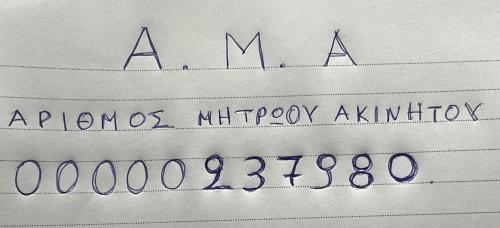 Α. Μ. Α
ΑΡΙΘΜΟΣ ΜΗΤΡΩΟΥ ΑΚΙΝΗΤΟΥ
00000237980